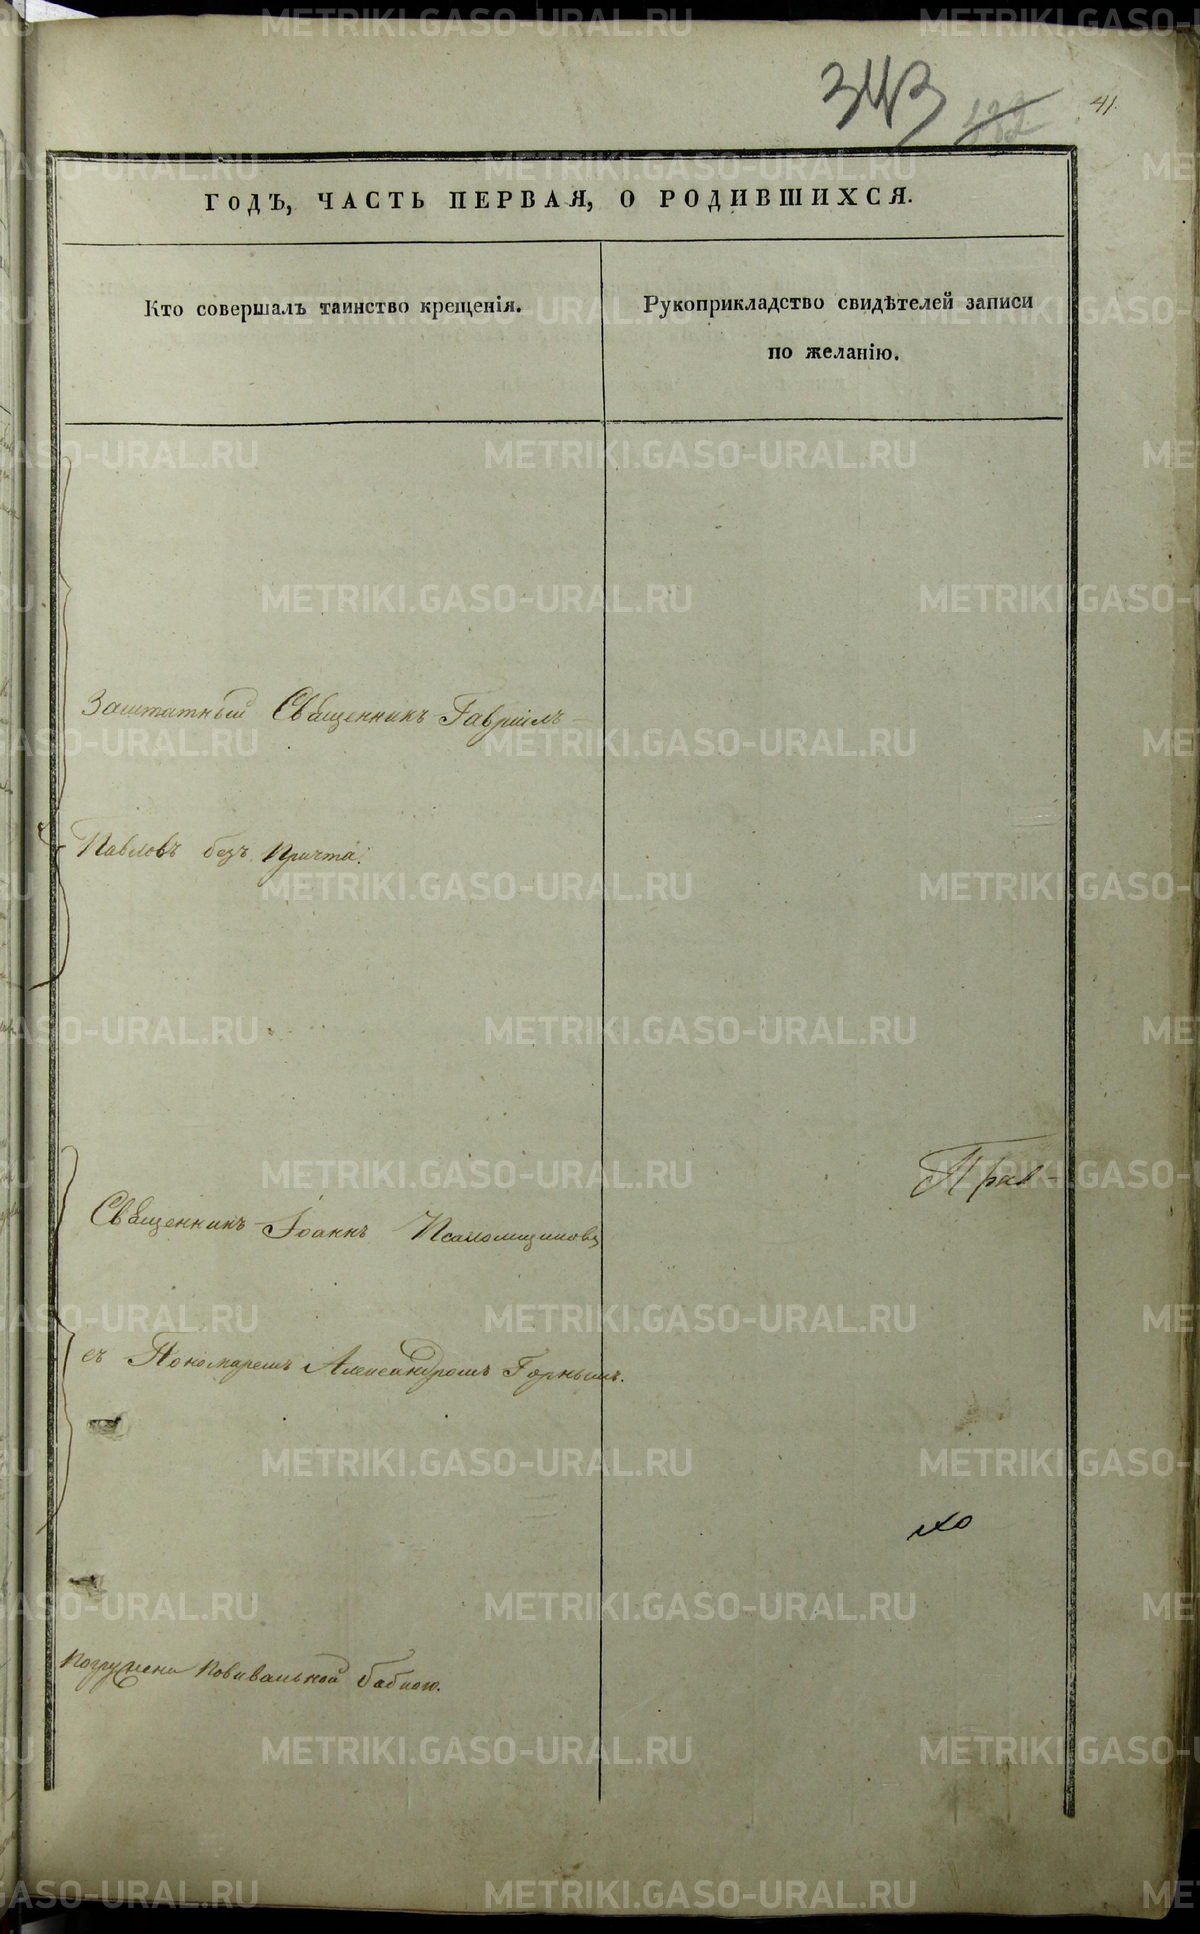 343
41.
ГОДЪ, ЧАСТЬ ПЕРВАЯ, О РОДИВШИХСЯ.
Кто совершалъ таинство крещенія.
Рукоприкладство свидѣтелей записи
по желанію.
Заштатный Священникъ Гавріилъ
Павловъ безъ причта.
Прав-
Священникъ Іоаннъ Псаломщиковъ
съ Пономаремъ Александромъ Горнымъ.
Погружена повивальной бабкою.
METRIKI.GASO-URAL.RU